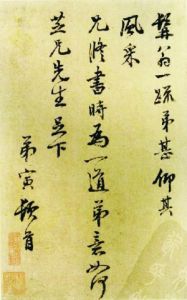 髯翁一疏弟甚仰其
風采
兄膳書時為一道弟意如何
芝兄先生足下
弟寅頓首